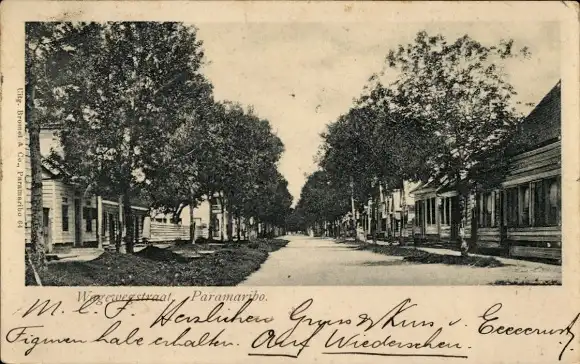 Uitg. Bromet & Co., Paramaribo 64
Wagewegstraat, Paramaribo.
M. l. F. Herzlichen Gruss & Kuss u.
Figuren habe erhalten. Auf Wiedersehen.